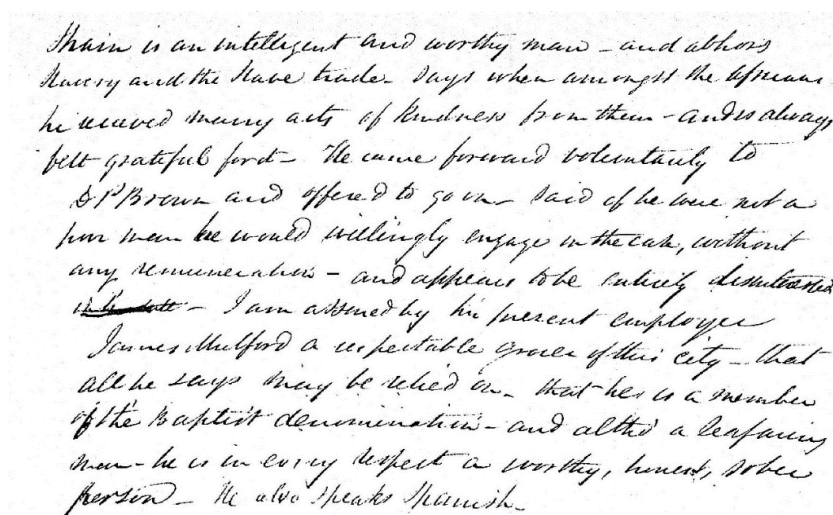 Shain is an intelligent and worthy man - and abhors
slavery and the slave trade - says when amongst the Africans
he received many acts of kindness from them - and is always
felt grateful for it - He came forward voluntarily to
D P Brown and offered to go on - said if he were not a
poor man he would willingly engage in the cause, without
any remuneration - and appears to be entirely disinterested
- I am assured by his present employer
James Mulford a respectable grocer of this city - that
all he says may be relied on - that he is a member
of the Baptist denomination - and altho' a seafaring
man - he is in every respect a worthy, honest, sober
person - He also speaks Spanish -